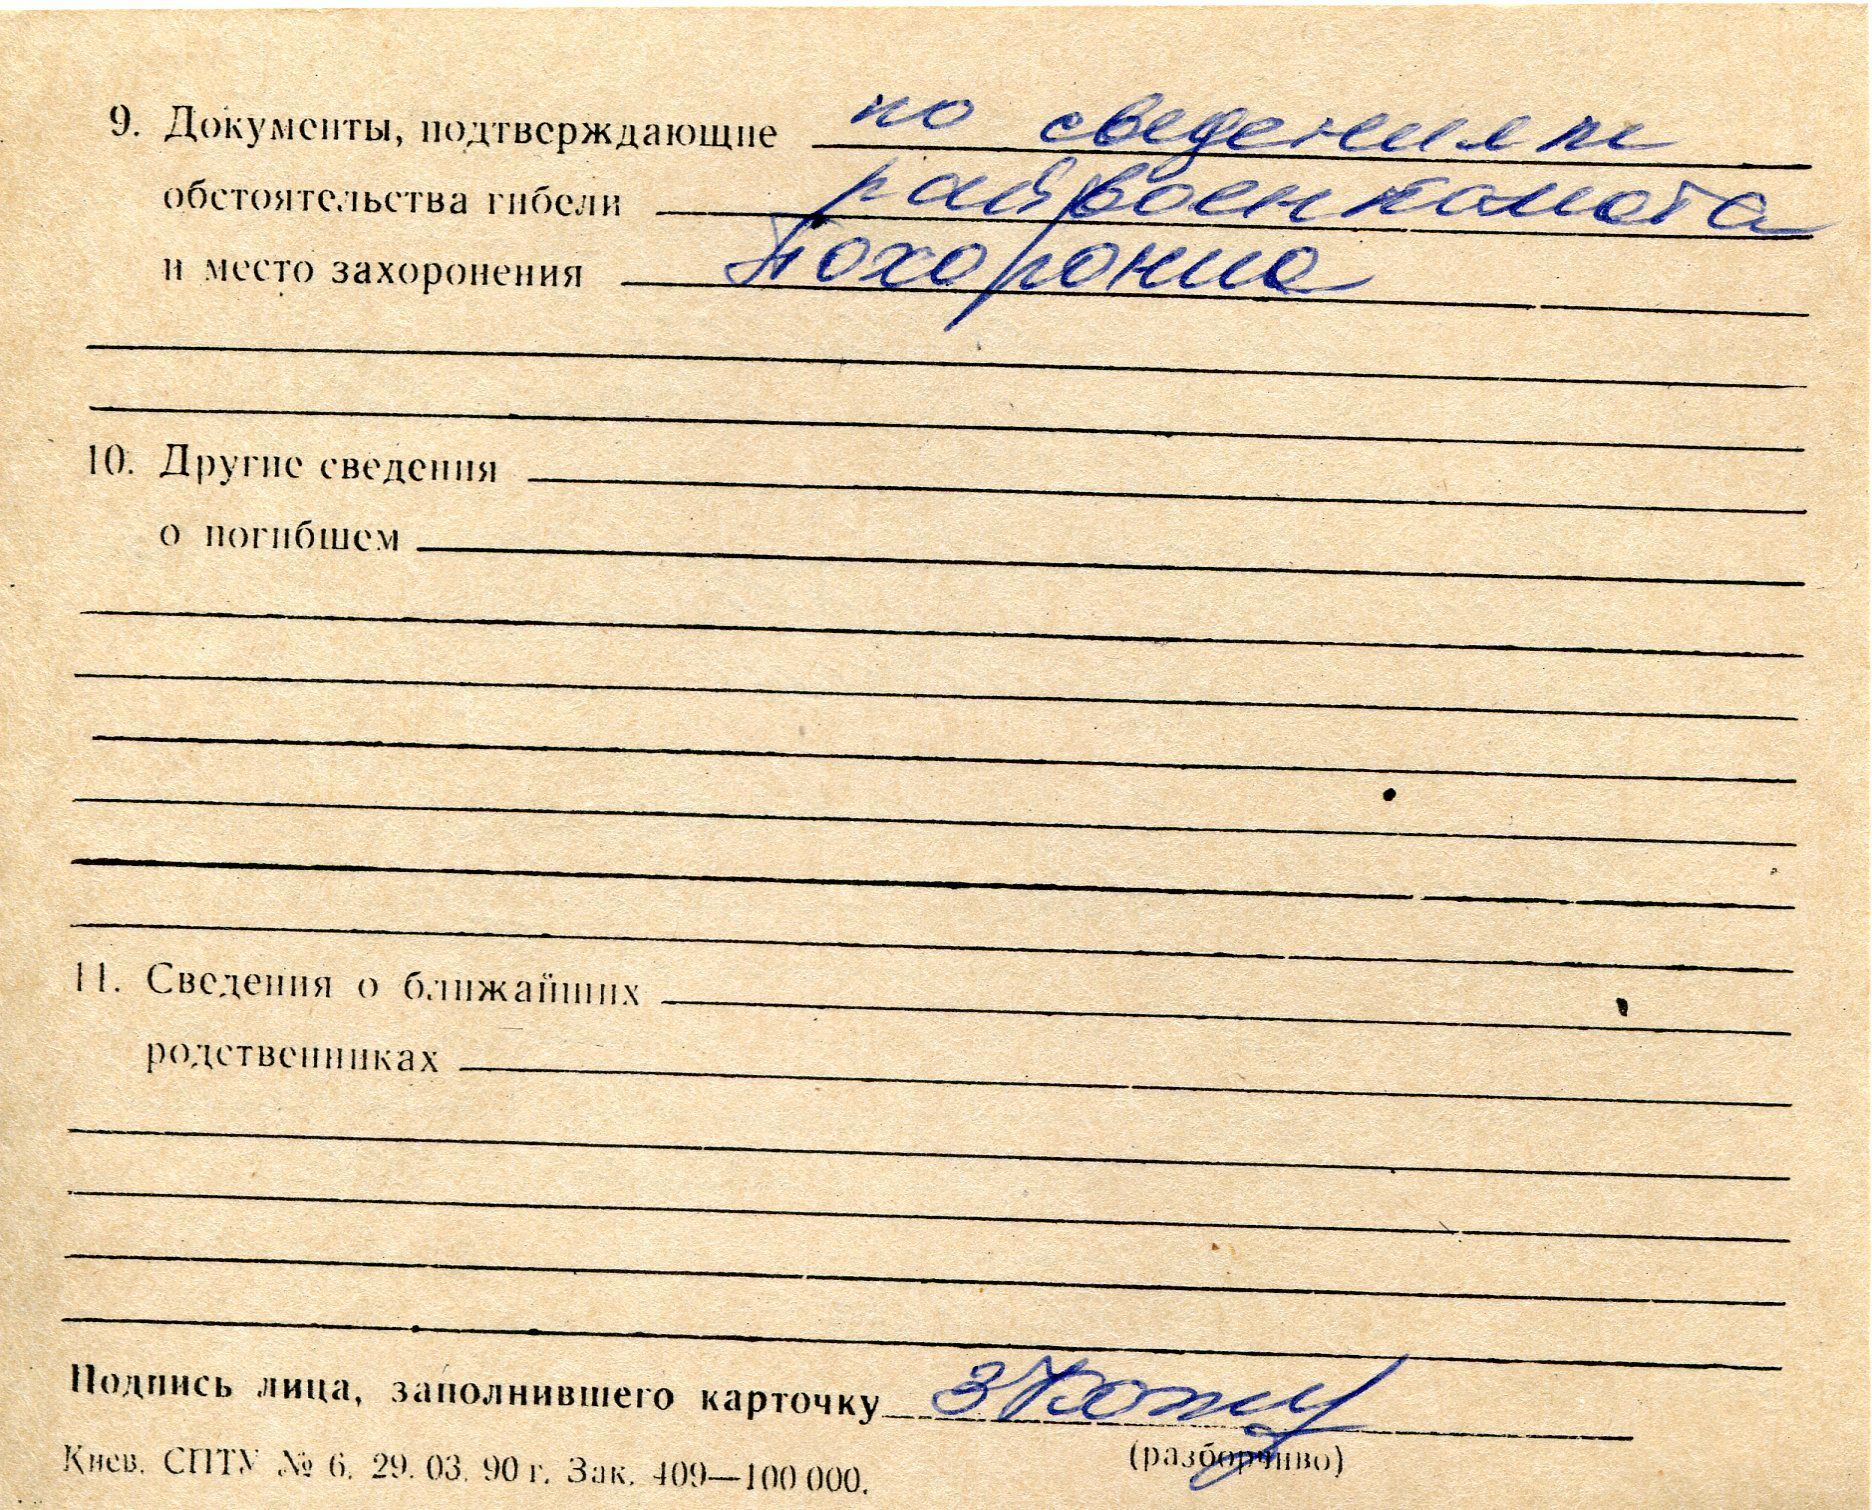 9. Документы, подтверждающие по сведениям
обстоятельства гибели райвоенкомата
и место захоронения Похоронно
10. Другие сведения
о погибшем
11. Сведения о ближайших
родственниках
Подпись лица, заполнившего карточку
(разборчиво)
Киев. СПТУ № 6. 29. 03. 90 г. Зак. 409—100 000.